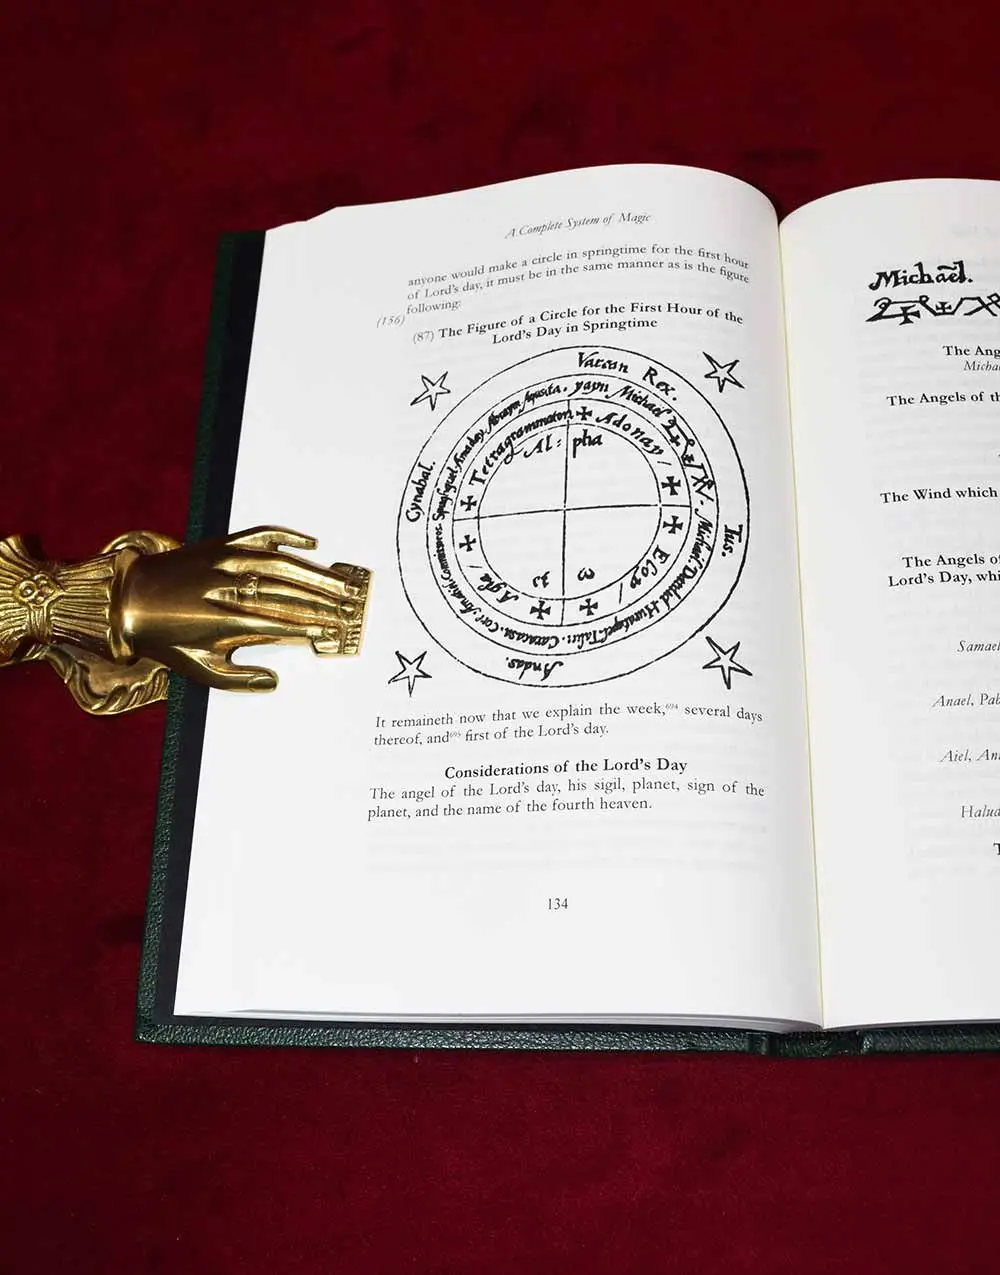 A Complete System of Magic
anyone would make a circle in springtime for the first hour
of Lord's day, it must be in the same manner as is the figure
following:
(156)
(87) The Figure of a Circle for the First Hour of the
Lord's Day in Springtime
Varcan Rex.
Tus.
Andas.
Cynabal.
yayn Michael
Michael. Dardiel. Huratapel.
Tetragrammaton
Adonay
Eloy
Agla
Al: pha
ω
It remaineth now that we explain the week,⁶⁹⁴ several days
thereof, and⁶⁹⁵ first of the Lord's day.
Considerations of the Lord's Day
The angel of the Lord's day, his sigil, planet, sign of the
planet, and the name of the fourth heaven.
134
Michael.
The Ang
Micha
The Angels of th
The Wind which
The Angels of
Lord's Day, whi
Samael
Anael, Pab
Aiel, Ani
Halud
T